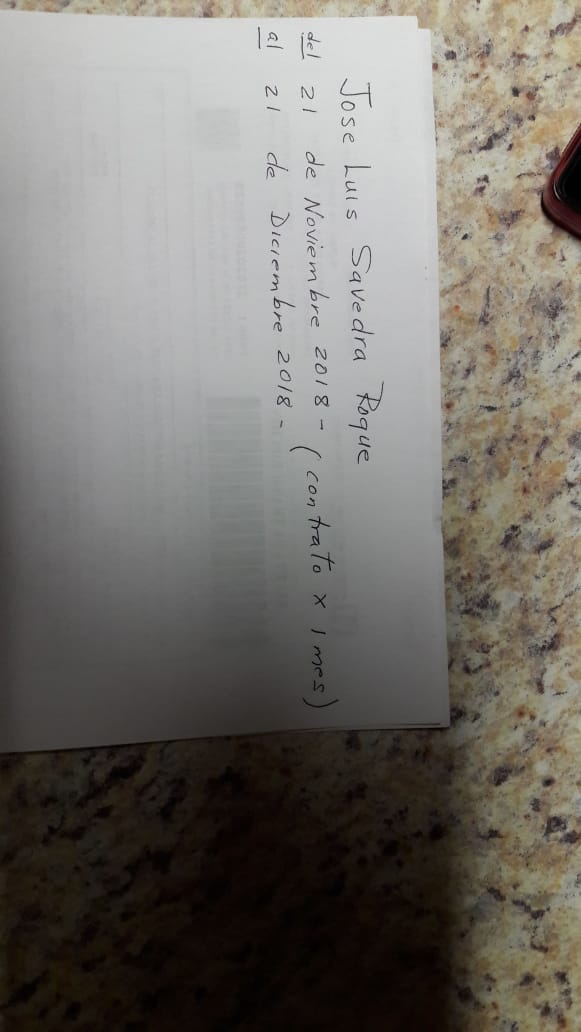 Jose Luis Savedra Roque
del 21 de Noviembre 2018 - (contrato x 1 mes)
al 21 de Diciembre 2018 -